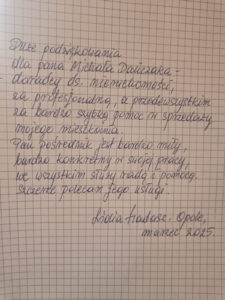 Duże podziękowania
dla pana Michała Dawczaka -
doradcy ds. nieruchomości,
za profesjonalną, a przedewszystkim
za bardzo szybką pomoc w sprzedaży
mojego mieszkania.
Pan pośrednik jest bardzo miły,
bardzo konkretny w swojej pracy,
we wszystkim służy radą i pomocą.
Szczerze polecam Jego usługi.
Lidia . Opole,
marzec 2025.